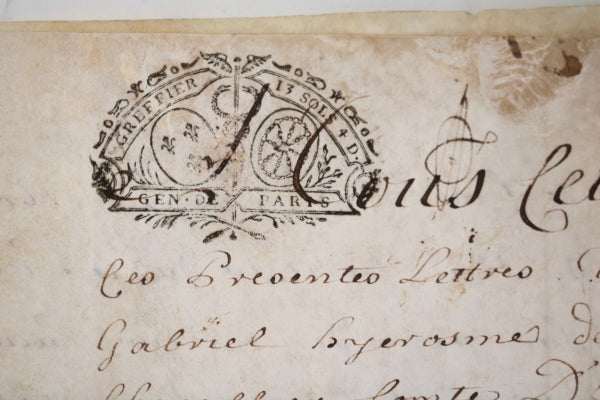 GREFFIER 13 SOLS 4 D.
GEN. DE PARIS
A Tous Ceu
Ces Presentes Lettres
Gabriël hyerosme de
Comte